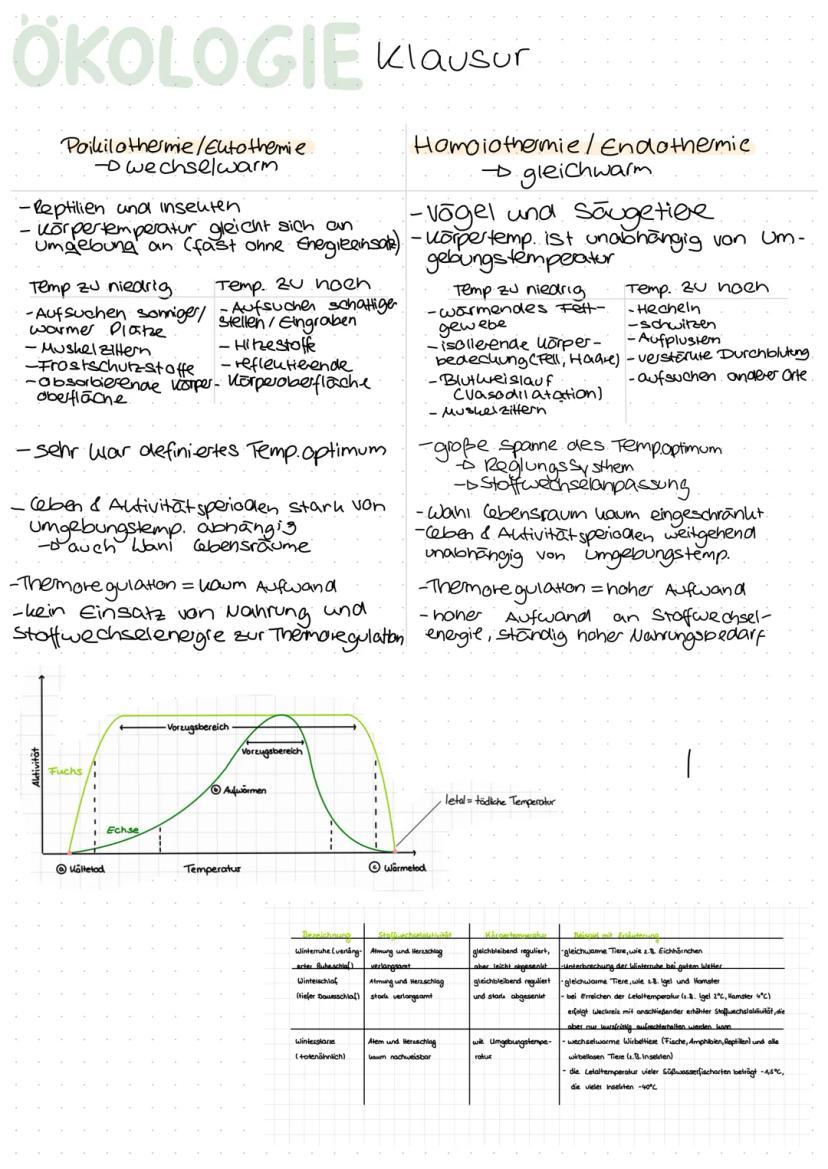 ÖKOLOGIE Klausur
Poikilothermie/Ektothermie
→ wechselwarm
- Reptilien und Insekten
- Körpertemperatur gleicht sich an
Umgebung an (fast ohne Energieeinsatz)
Temp zu niedrig
- Aufsuchen sonniger/
warmer Plätze
- Muskelzittern
- Frostschutzstoffe
- absorbierende Körper-
oberfläche
Temp. zu hoch
- Aufsuchen schattiger
Stellen / Eingraben
- Hitzestoffe
- reflektierende
Körperoberfläche
- sehr klar definiertes Temp.optimum
- Leben & Aktivitätsperioden stark von
Umgebungstemp. abhängig
→ auch Wahl Lebensräume
- Thermoregulation = kaum Aufwand
- kein Einsatz von Nahrung und
Stoffwechselenergie zur Thermoregulation
Homoiothermie / Endothermie
→ gleichwarm
- Vögel und Säugetiere
- Körpertemp. ist unabhängig von Um-
gebungstemperatur
Temp zu niedrig
- wärmendes Fett-
gewebe
- isolierende Körper-
bedeckung (Fell, Haare)
- Blutkreislauf
(Vasodilatation)
- Muskelzittern
Temp. zu hoch
- Hecheln
- schwitzen
- Aufplustern
- verstärkte Durchblutung
- aufsuchen anderer Orte
- große Spanne des Temp.optimum
→ Reglungssysthem
→ Stoffwechselanpassung
- Wahl Lebensraum kaum eingeschränkt
- Leben & Aktivitätsperioden weitgehend
unabhängig von Umgebungstemp.
- Thermoregulation = hoher Aufwand
- hoher Aufwand an Stoffwechsel-
energie, ständig hoher Nahrungsbedarf
Aktivität
Fuchs
Vorzugsbereich
Vorzugsbereich
ⓑ Aufwärmen
Echse
letal = tödliche Temperatur
ⓐ Kältetod
Temperatur
ⓒ Wärmetod
Bezeichnung
Stoffwechselaktivität
Körpertemperatur
Beispiel mit Erläuterung
Winterruhe (verläng-
erter Ruheschlaf)
Atmung und Herzschlag
verlangsamt
gleichbleibend reguliert,
aber leicht abgesenkt
- gleichwarme Tiere, wie z.B. Eichhörnchen
- Unterbrechung der Winterruhe bei gutem Wetter
Winterschlaf
(tiefer Dauerschlaf)
Atmung und Herzschlag
stark verlangsamt
gleichbleibend reguliert
und stark abgesenkt
- gleichwarme Tiere, wie z.B. Igel und Hamster
- bei Erreichen der Letaltemperatur (z.B. Igel 2°C, Hamster 4°C)
erfolgt Weckreiz mit anschließender erhöhter Stoffwechselaktivität, die
aber nur kurzfristig aufrechterhalten werden kann
Winterstarre
(totenähnlich)
Atem und Herzschlag
kaum nachweisbar
wie Umgebungstempe-
ratur
- wechselwarme Wirbeltiere (Fische, Amphibien, Reptilien) und alle
wirbellosen Tiere (z.B. Insekten)
- die Letaltemperatur vieler Süßwasserfischarten beträgt -1,5°C,
die vieler Insekten -40°C